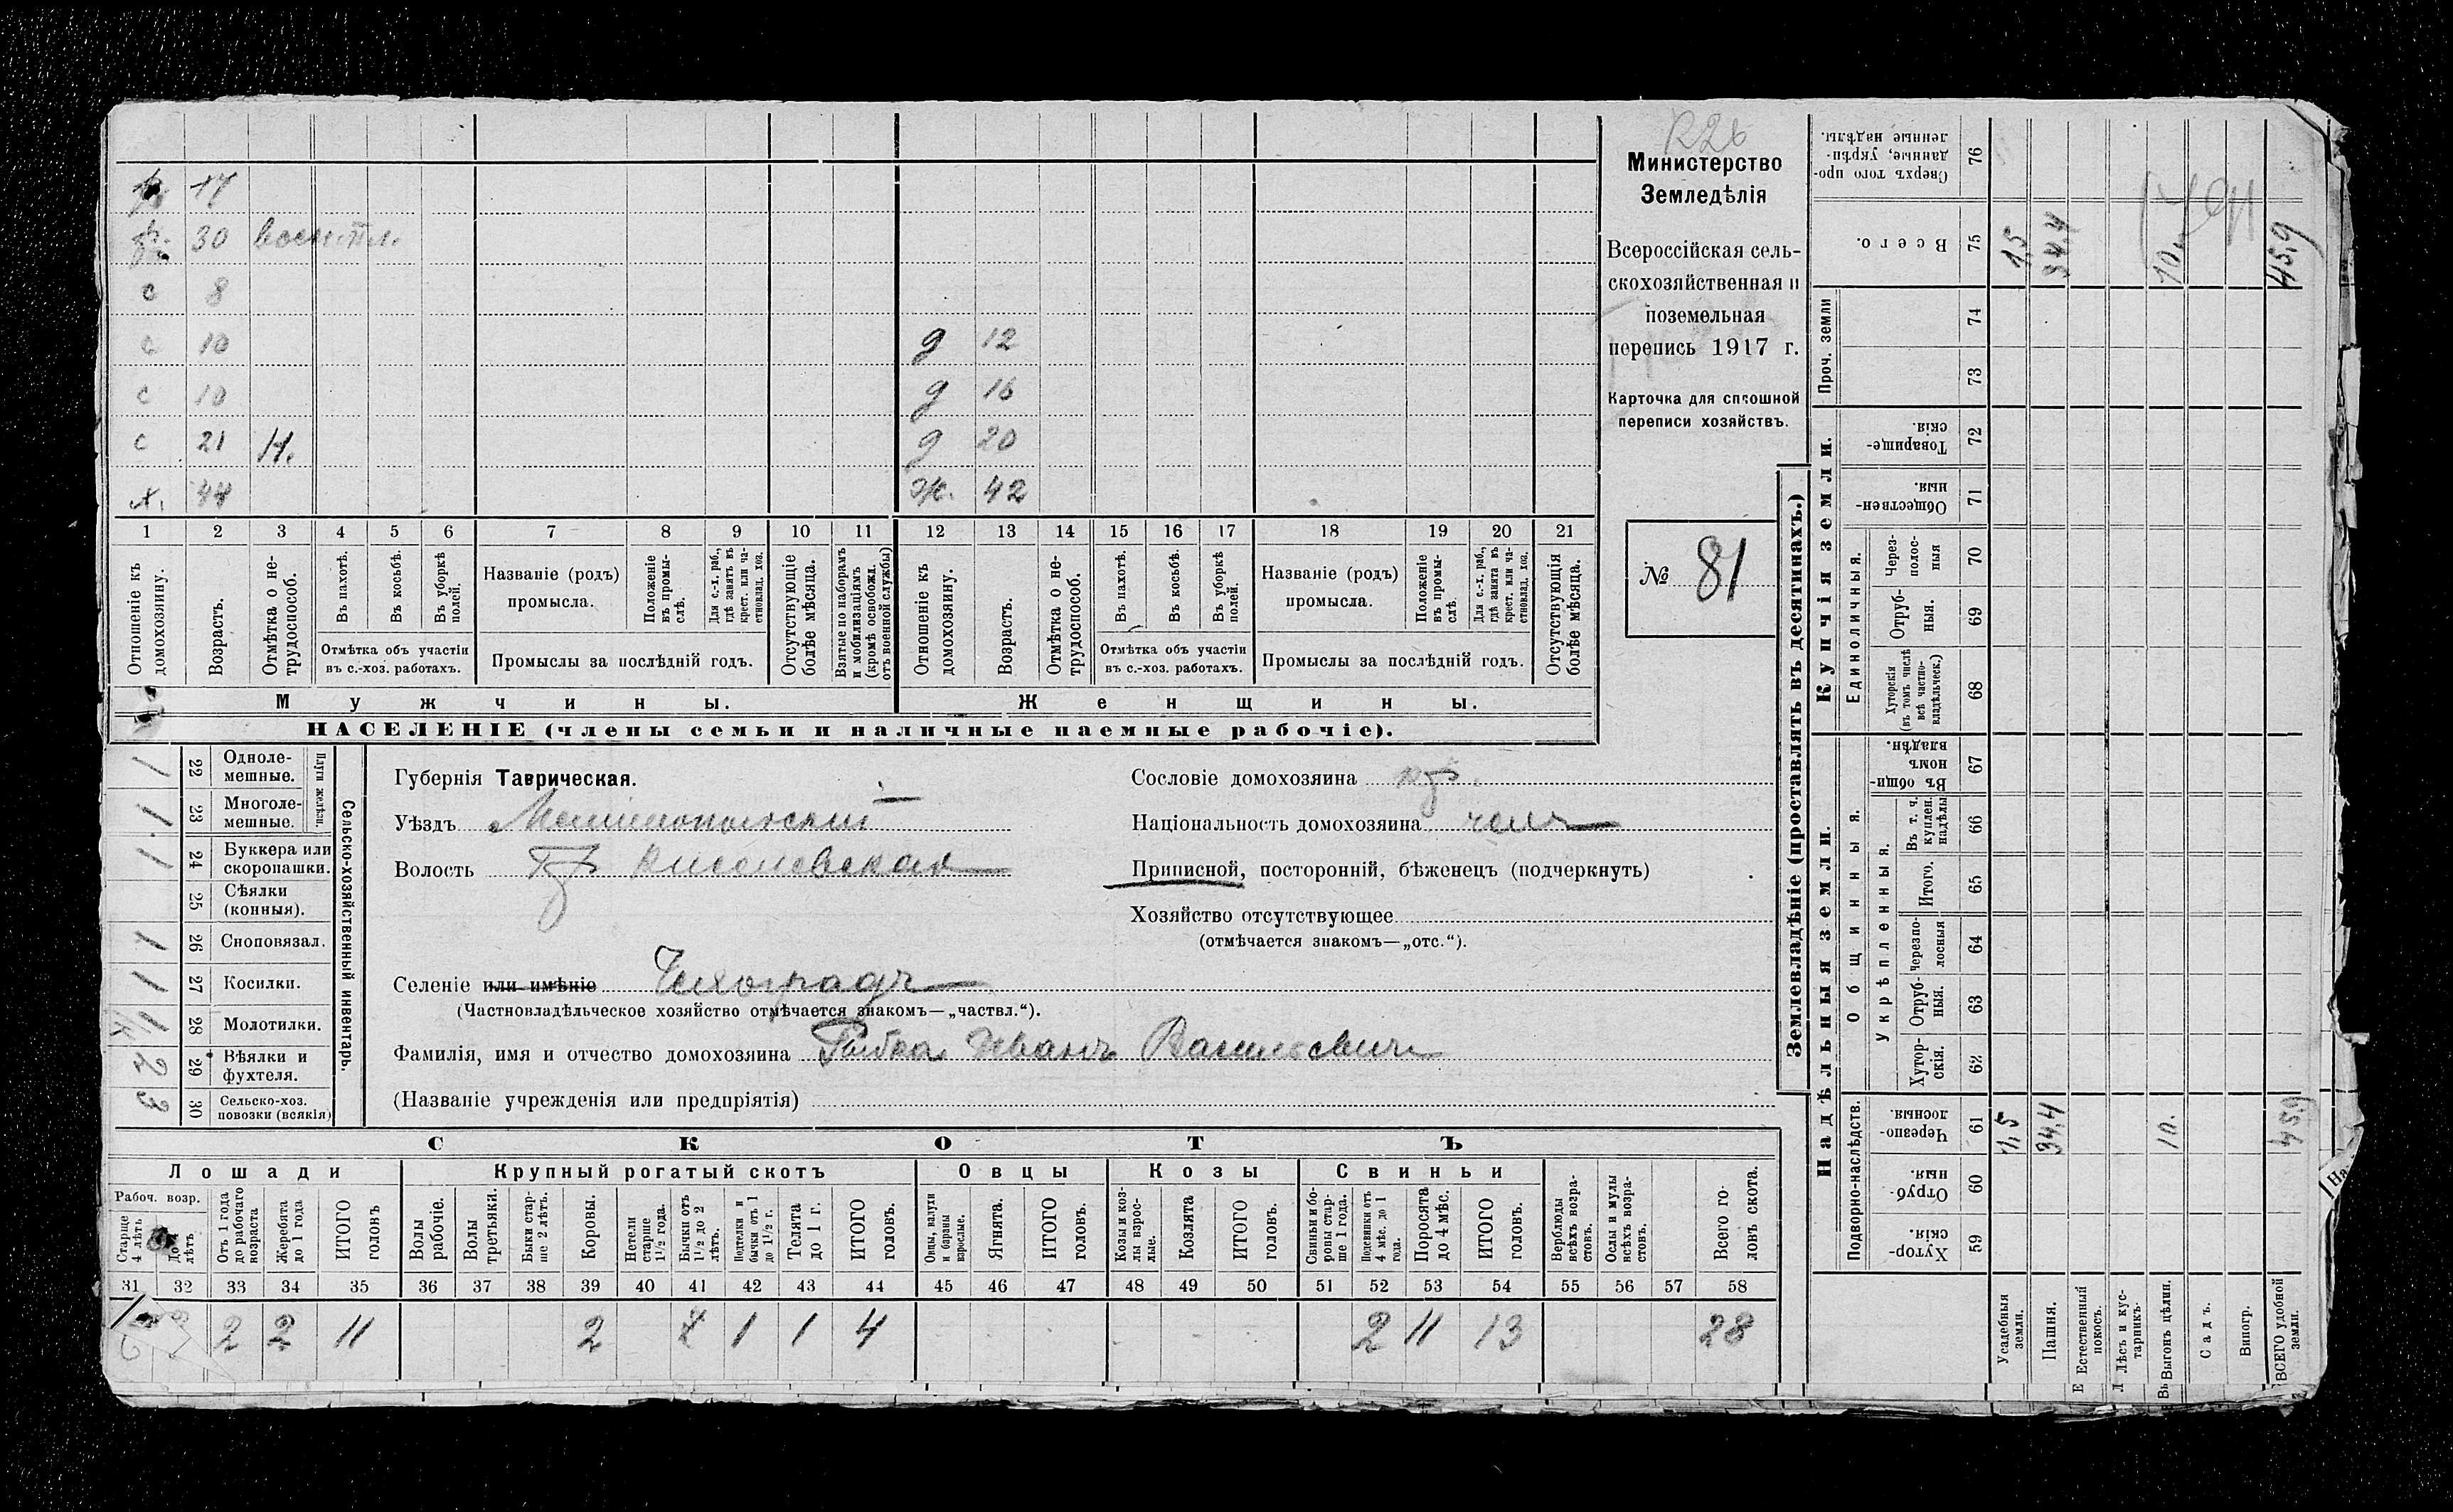 Министерство
Земледѣлія
Всероссійская сель-
скохозяйственная и
поземельная
перепись 1917 г.
Карточка для сплошной
переписи хозяйствъ.
№ 81
17
30
с 8
с 10
с 10
с 21 Н.
х. 44
д 12
д 16
д 20
ж. 42
1 2 3 4 5 6 7 8 9 10 11 12 13 14 15 16 17 18 19 20 21
Отношеніе къ домохозяину.
Возрастъ.
Отмѣтка о не-трудоспособ.
Въ пахотѣ.
Въ косьбѣ.
Въ уборкѣ полей.
Отмѣтка объ участіи
въ с.-хоз. работахъ.
Названіе (родъ)
промысла.
Положеніе въ промы-слѣ.
Для с.-х. раб., гдѣ занятъ въ крест. или ча-стновлад. хоз.
Промыслы за послѣдній годъ.
Отсутствующіе болѣе мѣсяца.
Взятые по наборамъ и мобилизаціямъ (кромѣ освобожд. отъ военной службы)
Отношеніе къ домохозяину.
Возрастъ.
Отмѣтка о не-трудоспособ.
Въ пахотѣ.
Въ косьбѣ.
Въ уборкѣ полей.
Отмѣтка объ участіи
въ с.-хоз. работахъ.
Названіе (родъ)
промысла.
Положеніе въ промы-слѣ
Для с.-х. раб., гдѣ занята въ крест. или ча-стновлад. хоз.
Промыслы за послѣдній годъ.
Отсутствующія болѣе мѣсяца.
Мужчины.
Женщины.
НАСЕЛЕНІЕ (члены семьи и наличные наемные рабочіе).
Сельско-хозяйственный инвентарь.
Плуги желѣзн.
22 Одноле-мешные. 1
23 Многоле-мешные. 1
24 Буккера или скоропашки. 1
25 Сѣялки (конныя).
26 Сноповязал. 1
27 Косилки. 1
28 Молотилки.
29 Вѣялки и фухтеля. 2
30 Сельско-хоз. повозки (всякія) 3
Губернія Таврическая.
Уѣздъ Мелитопольскій
Волость Киселевская
Селеніе или имѣніе Чехоградъ
(Частновладѣльческое хозяйство отмѣчается знакомъ—„частвл.“).
Фамилія, имя и отчество домохозяина Рыбка Иванъ Васильевичъ
(Названіе учрежденія или предпріятія)
Сословіе домохозяина
Національность домохозяина чехъ
Приписной, посторонній, бѣженецъ (подчеркнуть)
Хозяйство отсутствующее
(отмѣчается знакомъ—„отс.“).
СКОТЪ
Лошади Крупный рогатый скотъ Овцы Козы Свиньи
Рабоч. возр.
Старше 4 лѣтъ
До 4 лѣтъ
Отъ 1 года до рабочаго возраста
Жеребята до 1 года
ИТОГО головъ
Волы рабочіе.
Волы третьяки.
Быки стар-ше 2 лѣтъ.
Коровы.
Нетели старше 1½ года.
Бычки отъ 1½ до 2 лѣтъ.
Подтелки и бычки отъ 1 до 1½ г.
Телята до 1 г.
ИТОГО головъ.
Овцы, валухи и бараны взрослые.
Ягнята.
ИТОГО головъ.
Козы и коз-лы взрос-лые.
Козлята.
ИТОГО головъ.
Свиньи и бо-ровы стар-ше 1 года.
Подсвинки отъ 4 мѣс. до 1 года.
Поросята до 4 мѣс.
ИТОГО головъ.
Верблюды всѣхъ возра-стовъ.
Ослы и мулы всѣхъ возра-стовъ.
Всего го-ловъ скота.
31 32 33 34 35 36 37 38 39 40 41 42 43 44 45 46 47 48 49 50 51 52 53 54 55 56 57 58
2 2 11 2 1 1 4 2 11 13 28
Землевладѣніе (проставлять въ десятинахъ.)
Надѣльныя земли.
Купчія земли.
Проч. земли
Подворно-наслѣдств.
Общинныя.
Укрѣпленныя.
Единоличныя.
59 Хутор-скія.
60 Отруб-ныя.
61 Черезпо-лосныя.
62 Хутор-скія.
63 Отруб-ныя.
64 Черезпо-лосныя
65 Итого.
66 Въ т. ч. куплен. надѣлы
67 Въ общи-номъ владѣн.
68 Хуторскія (въ томъ числѣ всѣ частно-владѣльческ.)
69 Отруб-ныя.
70 Через-полос-ныя
71 Обществен-ныя.
72 Товарище-скія.
73
74
75 Всего.
76 Сверхъ того про-данные, укрѣп-ленные надѣлы.
Усадебныя земли. 1,5 1,5
Пашня. 34,4 34,4
Естественный покосъ.
Лѣсъ и кус-тарникъ.
Выгонъ цѣлин. 10. 10
Садъ.
Виногр.
ВСЕГО удобной земли. 45,9 45,9